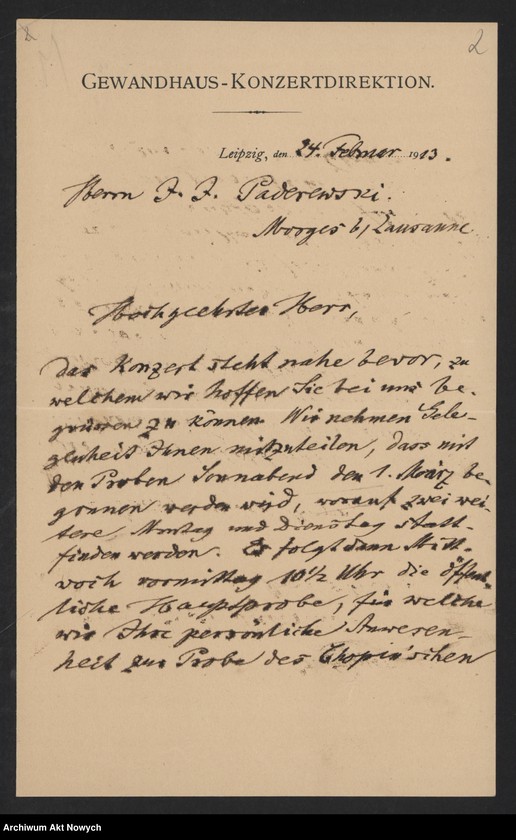 2
GEWANDHAUS-KONZERTDIREKTION.
Leipzig, den 24. Februar 1913.
Herrn I. J. Paderewski.
Morges b/Lausanne
Hochgeehrter Herr,
Das Konzert steht nahe bevor, zu
welchem wir hoffen Sie bei uns be-
grüssen zu können. Wir nehmen Gele-
genheit Ihnen mitzuteilen, dass mit
den Proben Sonnabend den 1. März be-
gonnen werden wird, worauf zwei wei-
tere Montag und Dienstag statt-
finden werden. Es folgt dann Mitt-
woch vormittag 10½ Uhr die öffent-
liche Hauptprobe, für welche
wir Ihre persönliche Anwesen-
heit zur Probe des Chopin'schen
Archiwum Akt Nowych